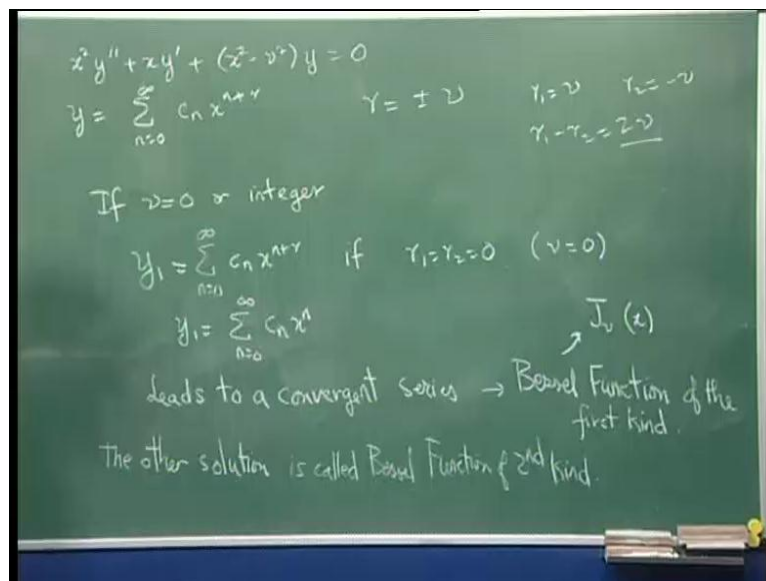 x²y'' + xy' + (x² - ν²) y = 0
y = ∑_{n=0}^{∞} c_n x^{n+r} r = ± ν r₁ = ν r₂ = -ν
r₁ - r₂ = 2ν
If ν=0 or integer
y₁ = ∑_{n=0}^{∞} c_n x^{n+r} if r₁ = r₂ = 0 (ν=0)
y₁ = ∑_{n=0}^{∞} c_n x^n J_ν(x)
Leads to a convergent series → Bessel Function of the
first kind.
The other solution is called Bessel Function of 2nd kind.